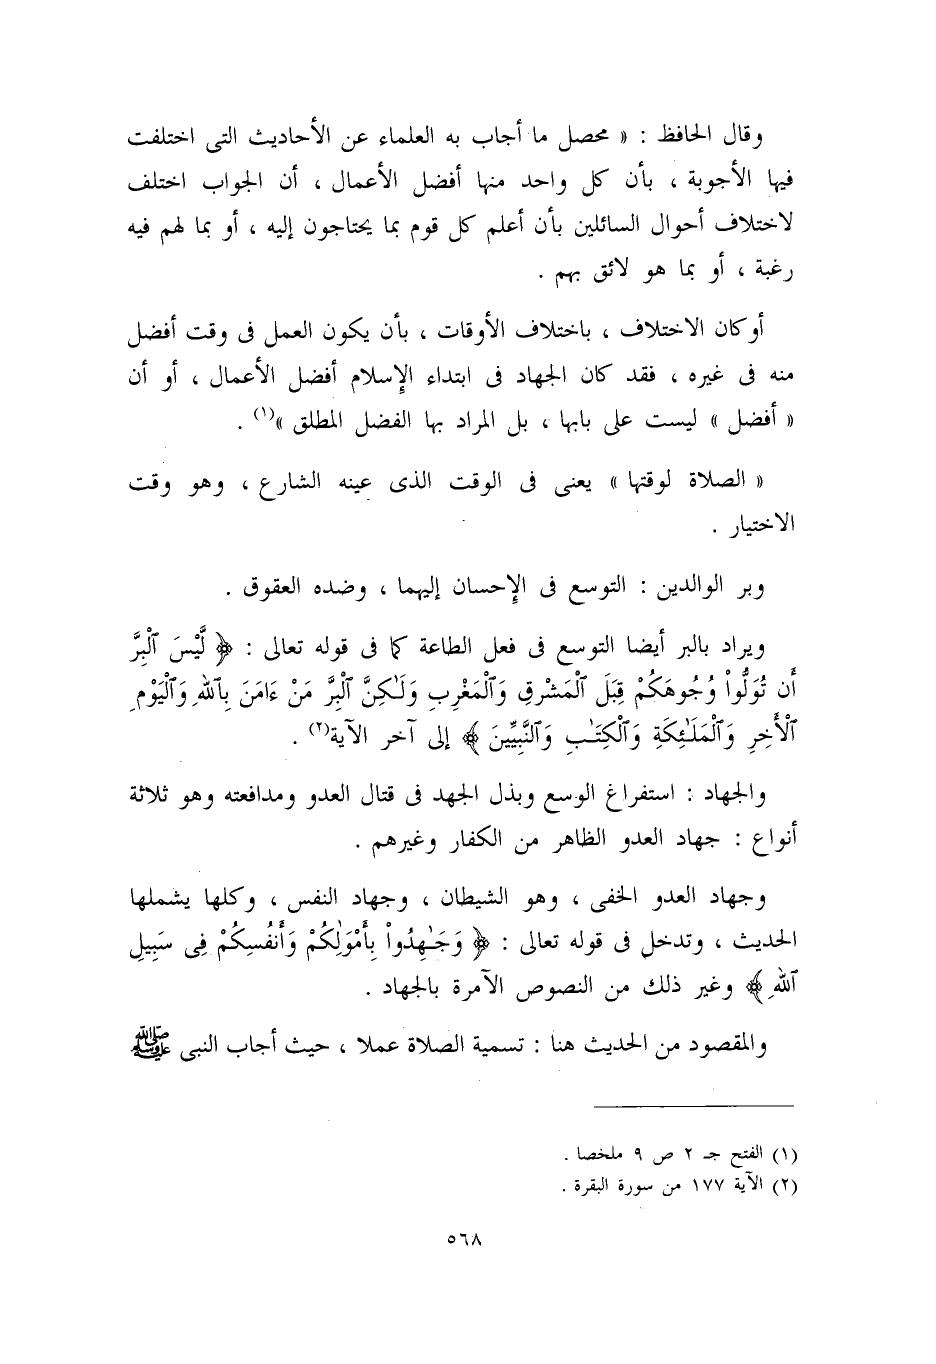 وقال الحافظ : « محصل ما أجاب به العلماء عن الأحاديث التى اختلفت
فيها الأجوبة ، بأن كل واحد منها أفضل الأعمال ، أن الجواب اختلف
لاختلاف أحوال السائلين بأن أعلم كل قوم بما يحتاجون إليه ، أو بما لهم فيه
رغبة ، أو بما هو لائق بهم .
أو كان الاختلاف ، باختلاف الأوقات ، بأن يكون العمل فى وقت أفضل
منه فى غيره ، فقد كان الجهاد فى ابتداء الإسلام أفضل الأعمال ، أو أن
« أفضل » ليست على بابها ، بل المراد بها الفضل المطلق »(١) .
« الصلاة لوقتها » يعنى فى الوقت الذى عينه الشارع ، وهو وقت
الاختيار .
وبر الوالدين : التوسع فى الإحسان إليهما ، وضده العقوق .
ويراد بالبر أيضا التوسع فى فعل الطاعة كما فى قوله تعالى : ﴿ لَّيْسَ ٱلْبِرَّ
أَن تُوَلُّوا۟ وُجُوهَكُمْ قِبَلَ ٱلْمَشْرِقِ وَٱلْمَغْرِبِ وَلَـٰكِنَّ ٱلْبِرَّ مَنْ ءَامَنَ بِٱللَّهِ وَٱلْيَوْمِ
ٱلْأَخِرِ وَٱلْمَلَـٰٓئِكَةِ وَٱلْكِتَـٰبِ وَٱلنَّبِيِّـۧنَ ﴾ إلى آخر الآية(٢) .
والجهاد : استفراغ الوسع وبذل الجهد فى قتال العدو ومدافعته وهو ثلاثة
أنواع : جهاد العدو الظاهر من الكفار وغيرهم .
وجهاد العدو الخفى ، وهو الشيطان ، وجهاد النفس ، وكلها يشملها
الحديث ، وتدخل فى قوله تعالى : ﴿ وَجَـٰهِدُوا۟ بِأَمْوَٰلِكُمْ وَأَنفُسِكُمْ فِى سَبِيلِ
ٱللَّهِ ﴾ وغير ذلك من النصوص الآمرة بالجهاد .
والمقصود من الحديث هنا : تسمية الصلاة عملا ، حيث أجاب النبى ﷺ
(١) الفتح جـ ٢ ص ٩ ملخصا .
(٢) الآية ١٧٧ من سورة البقرة .
٥٦٨